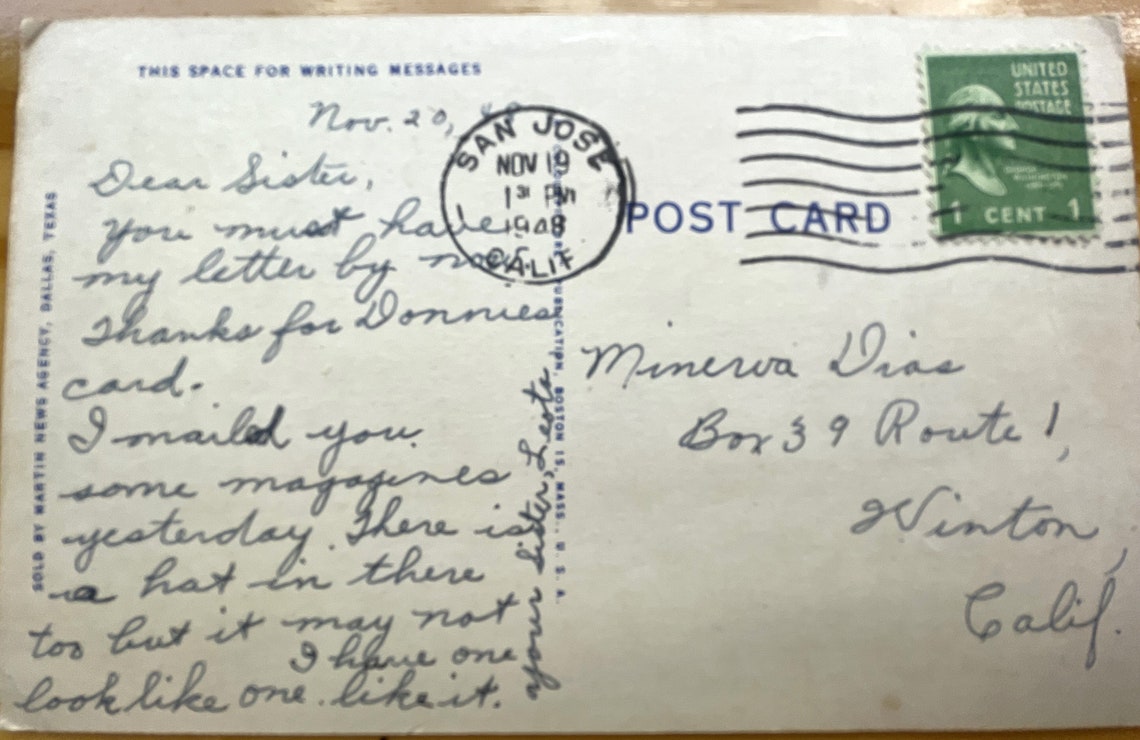 THIS SPACE FOR WRITING MESSAGES
Nov. 20,
Dear Sister,
You must have
my letter by now.
Thanks for Donnies
card.
I mailed you
some magazines
yesterday. There is
a hat in there
too but it may not
look like one. I have one
like it.
your sister, Leota
SOLD BY MARTIN NEWS AGENCY, DALLAS, TEXAS
PUBLICATION, BOSTON 15, MASS., U. S. A.
SAN JOSE
NOV 19
1 PM
1948
CALIF
POST CARD
UNITED
STATES
POSTAGE
1 CENT 1
Minerva Dias
Box 39 Route 1,
Winton,
Calif.